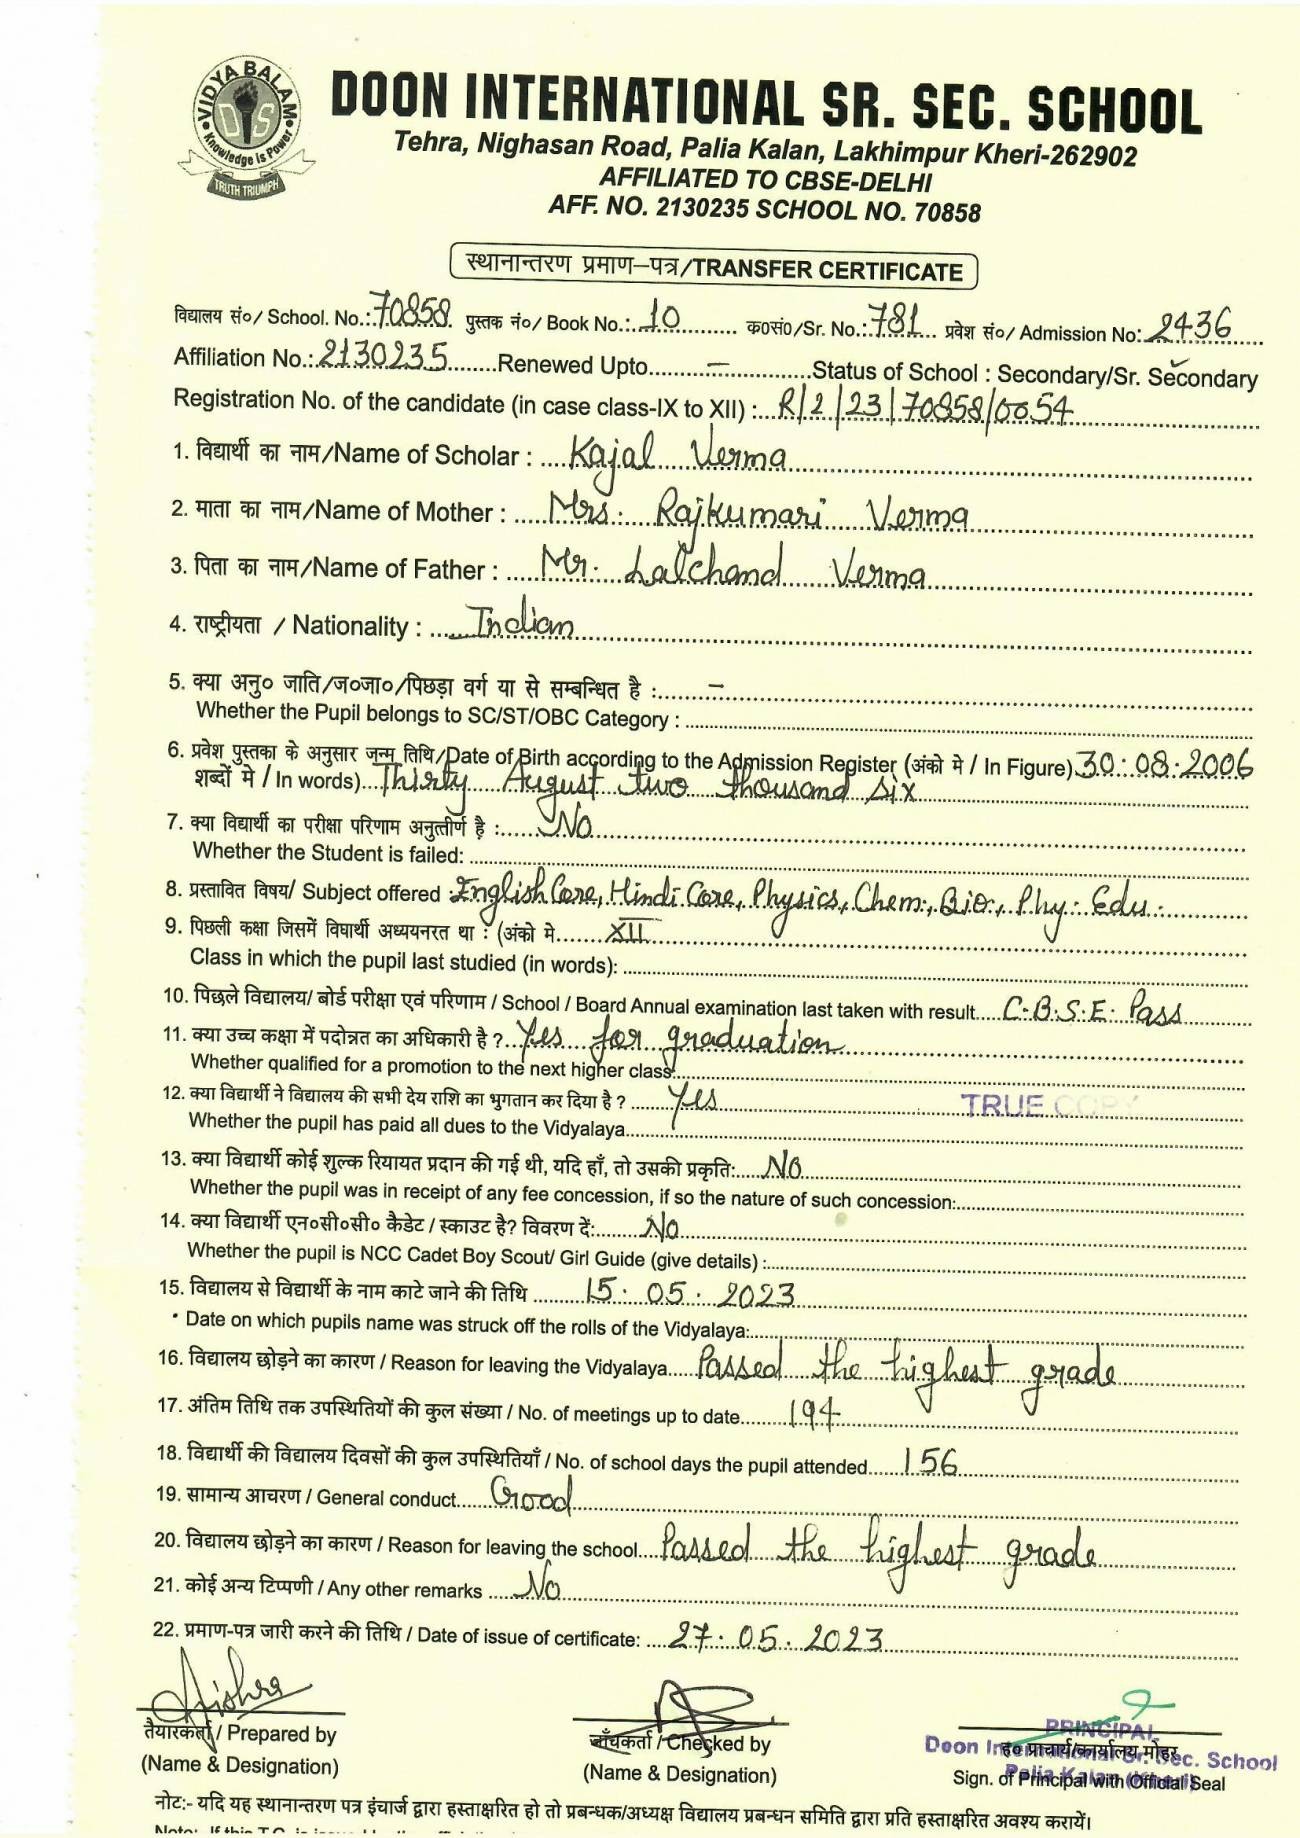 VIDYA BALAM
DIS
Knowledge is Power
TRUTH TRIUMPH
DOON INTERNATIONAL SR. SEC. SCHOOL
Tehra, Nighasan Road, Palia Kalan, Lakhimpur Kheri-262902
AFFILIATED TO CBSE-DELHI
AFF. NO. 2130235 SCHOOL NO. 70858
स्थानान्तरण प्रमाण–पत्र/TRANSFER CERTIFICATE
विद्यालय सं०/ School. No.: 70858 पुस्तक नं०/ Book No.: 10 क०सं०/Sr. No.: 781 प्रवेश सं०/ Admission No: 2436
Affiliation No.: 2130235 Renewed Upto – Status of School : Secondary/Sr. Secondary
Registration No. of the candidate (in case class-IX to XII) : R/2/23/70858/0054
1. विद्यार्थी का नाम/Name of Scholar : Kajal Verma
2. माता का नाम/Name of Mother : Mrs. Rajkumari Verma
3. पिता का नाम/Name of Father : Mr. Lalchand Verma
4. राष्ट्रीयता / Nationality : Indian
5. क्या अनु० जाति/ज०जा०/पिछड़ा वर्ग या से सम्बन्धित है : –
Whether the Pupil belongs to SC/ST/OBC Category :
6. प्रवेश पुस्तका के अनुसार जन्म तिथि/Date of Birth according to the Admission Register (अंको मे / In Figure) 30.08.2006
शब्दों मे / In words) Thirty August two thousand six
7. क्या विद्यार्थी का परीक्षा परिणाम अनुत्तीर्ण है : No
Whether the Student is failed:
8. प्रस्तावित विषय/ Subject offered : English Core, Hindi Core, Physics, Chem., Bio., Phy. Edu.
9. पिछली कक्षा जिसमें विघार्थी अध्ययनरत था : (अंको मे XII
Class in which the pupil last studied (in words):
10. पिछले विद्यालय/ बोर्ड परीक्षा एवं परिणाम / School / Board Annual examination last taken with result C.B.S.E. Pass
11. क्या उच्च कक्षा में पदोन्नत का अधिकारी है ? Yes for graduation
Whether qualified for a promotion to the next higher class
12. क्या विद्यार्थी ने विद्यालय की सभी देय राशि का भुगतान कर दिया है ? Yes
TRUE COPY
Whether the pupil has paid all dues to the Vidyalaya
13. क्या विद्यार्थी कोई शुल्क रियायत प्रदान की गई थी, यदि हाँ, तो उसकी प्रकृति: No
Whether the pupil was in receipt of any fee concession, if so the nature of such concession:
14. क्या विद्यार्थी एन०सी०सी० कैडेट / स्काउट है? विवरण दें: No
Whether the pupil is NCC Cadet Boy Scout/ Girl Guide (give details) :
15. विद्यालय से विद्यार्थी के नाम काटे जाने की तिथि 15.05.2023
Date on which pupils name was struck off the rolls of the Vidyalaya:
16. विद्यालय छोड़ने का कारण / Reason for leaving the Vidyalaya Passed the highest grade
17. अंतिम तिथि तक उपस्थितियों की कुल संख्या / No. of meetings up to date 194
18. विद्यार्थी की विद्यालय दिवसों की कुल उपस्थितियाँ / No. of school days the pupil attended 156
19. सामान्य आचरण / General conduct Good
20. विद्यालय छोड़ने का कारण / Reason for leaving the school Passed the highest grade
21. कोई अन्य टिप्पणी / Any other remarks No
22. प्रमाण-पत्र जारी करने की तिथि / Date of issue of certificate: 27.05.2023
तैयारकर्ता / Prepared by
(Name & Designation)
जाँचकर्ता / Checked by
(Name & Designation)
PRINCIPAL
Doon International Sr. Sec. School
Palia Kalan (Kheri)
ह० प्राचार्य/कार्यालय मोहर
Sign. of Principal with Official Seal
नोट:- यदि यह स्थानान्तरण पत्र इंचार्ज द्वारा हस्ताक्षरित हो तो प्रबन्धक/अध्यक्ष विद्यालय प्रबन्धन समिति द्वारा प्रति हस्ताक्षरित अवश्य करायें।
Note: If this T.C. is issued by the